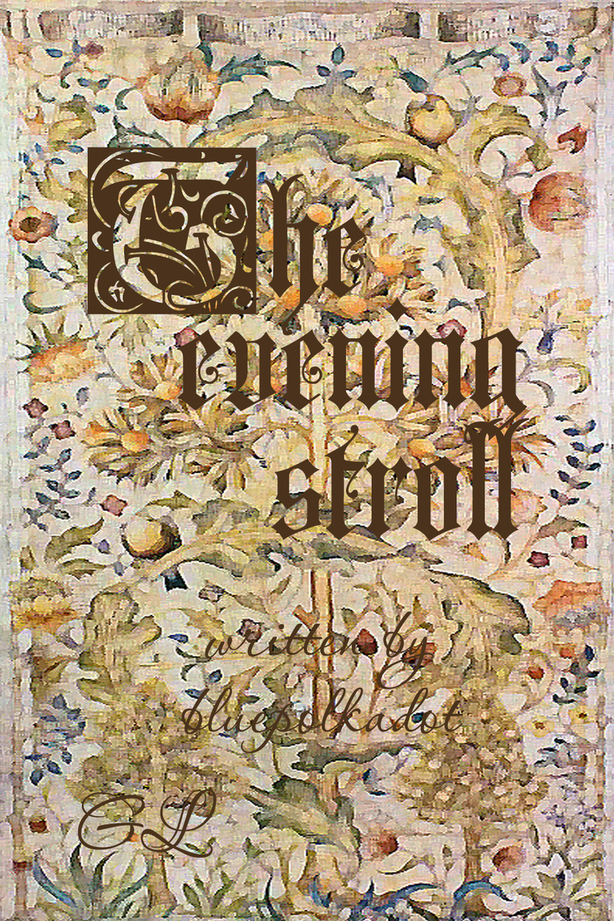 The
evening
stroll
written by
bluepolkadot
GL